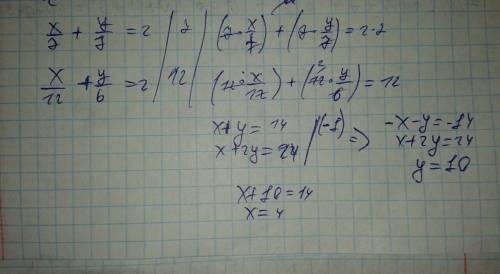 x/7 + y/7 = 2 | 7 | (7·x/7) + (7·y/7) = 2·7
x/12 + y/6 = 2 | 12 | (12·x/12) + (12·y/6) = 12
x+y=14 | (-1) => -x-y=-14
x+2y=24 x+2y=24
y=10
x+10=14
x=4